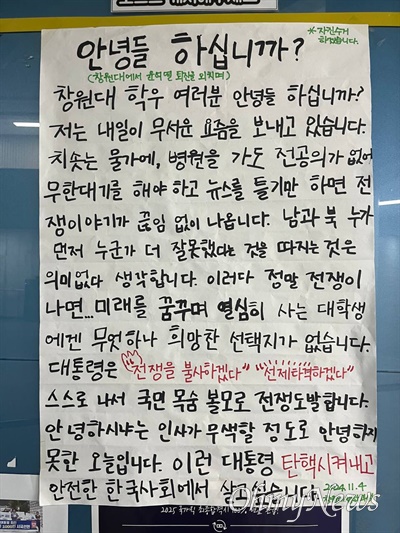 안녕들 하십니까?
*자진수거
하겠습니다.
(창원대에서 윤석열 퇴진을 외치며)
창원대 학우 여러분 안녕들 하십니까?
저는 내일이 무서운 요즘을 보내고 있습니다.
치솟는 물가에, 병원을 가도 전공의가 없어
무한대기를 해야 하고 뉴스를 틀기만 하면 전
쟁이야기가 끊임 없이 나옵니다. 남과 북 누가
먼저 누군가 더 잘못했다는 것을 따지는 것은
의미없다 생각합니다. 이러다 정말 전쟁이
나면... 미래를 꿈꾸며 열심히 사는 대학생
에겐 무엇하나 희망찬 선택지가 없습니다.
대통령은 "전쟁을 불사하겠다" "선제타격하겠다"
스스로 나서 국민 목숨 볼모로 전쟁도발합니다.
안녕하시냐는 인사가 무색할 정도로 안녕하지
못한 오늘입니다. 이런 대통령 탄핵시켜내고
안전한 한국사회에서 살고싶습니다.
2024.11.4
OhmyNews